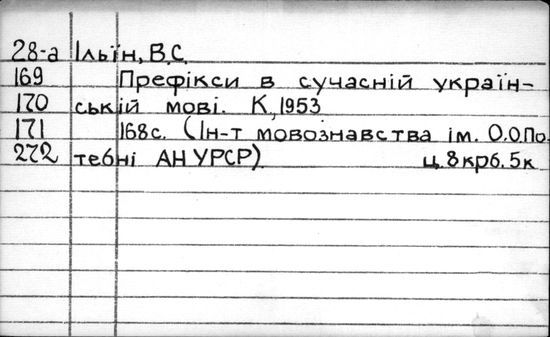 28-а Ільїн, В.С.
169 Префікси в сучасній україн-
170 ській мові. К, 1953
171 168с. (Ін-т мовознавства ім. О.О.По.
272 тебні АН УРСР) ц. 8крб. 5к